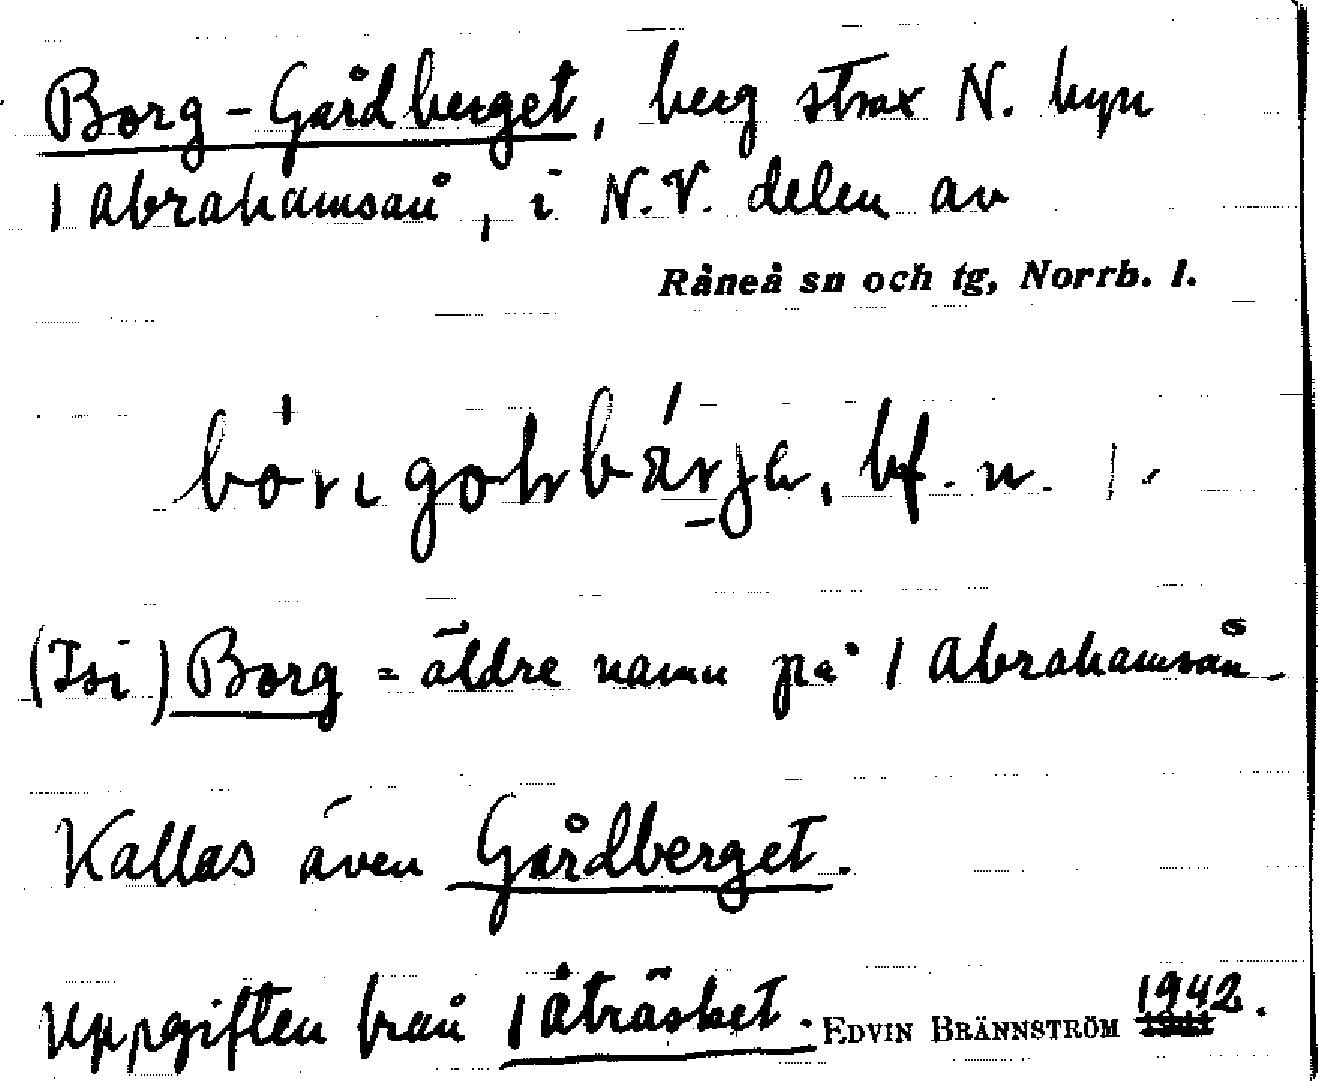 Borg-Gårdberget, berg strax N. byn
1 Abrahamsån, i N.V. delen av
Råneå sn och tg, Norrb. l.
bf. n.
(Isi) Borg = äldre namn på 1 Abrahamsån
Kallas även Gårdberget.
Uppgiften från 1 Åträsket. EDVIN BRÄNNSTRÖM 1942.